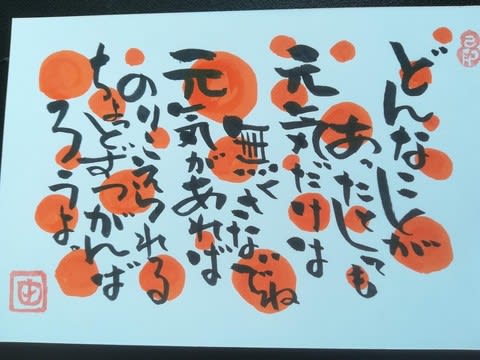 どんなことが
あったとしても
元気だけは
無くさないでね
元気があれば
のりこえられる
ちょっとずつがんば
ろうよ